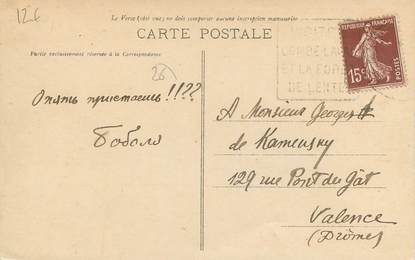 12€
Le Verso (côté vue) ne doit comporter aucune inscription manuscrite
CARTE POSTALE
Partie exclusivement réservée à la Correspondance
(26)
RÉPUBLIQUE FRANÇAISE
15c
POSTES
COMBE LAVAL
ET LA FORÊT
DE LENTE
Опять пристаешь!!??
Боболо
A Monsieur Georges
de Kamensky
129 rue Pont du Gât
Valence
(Drôme)